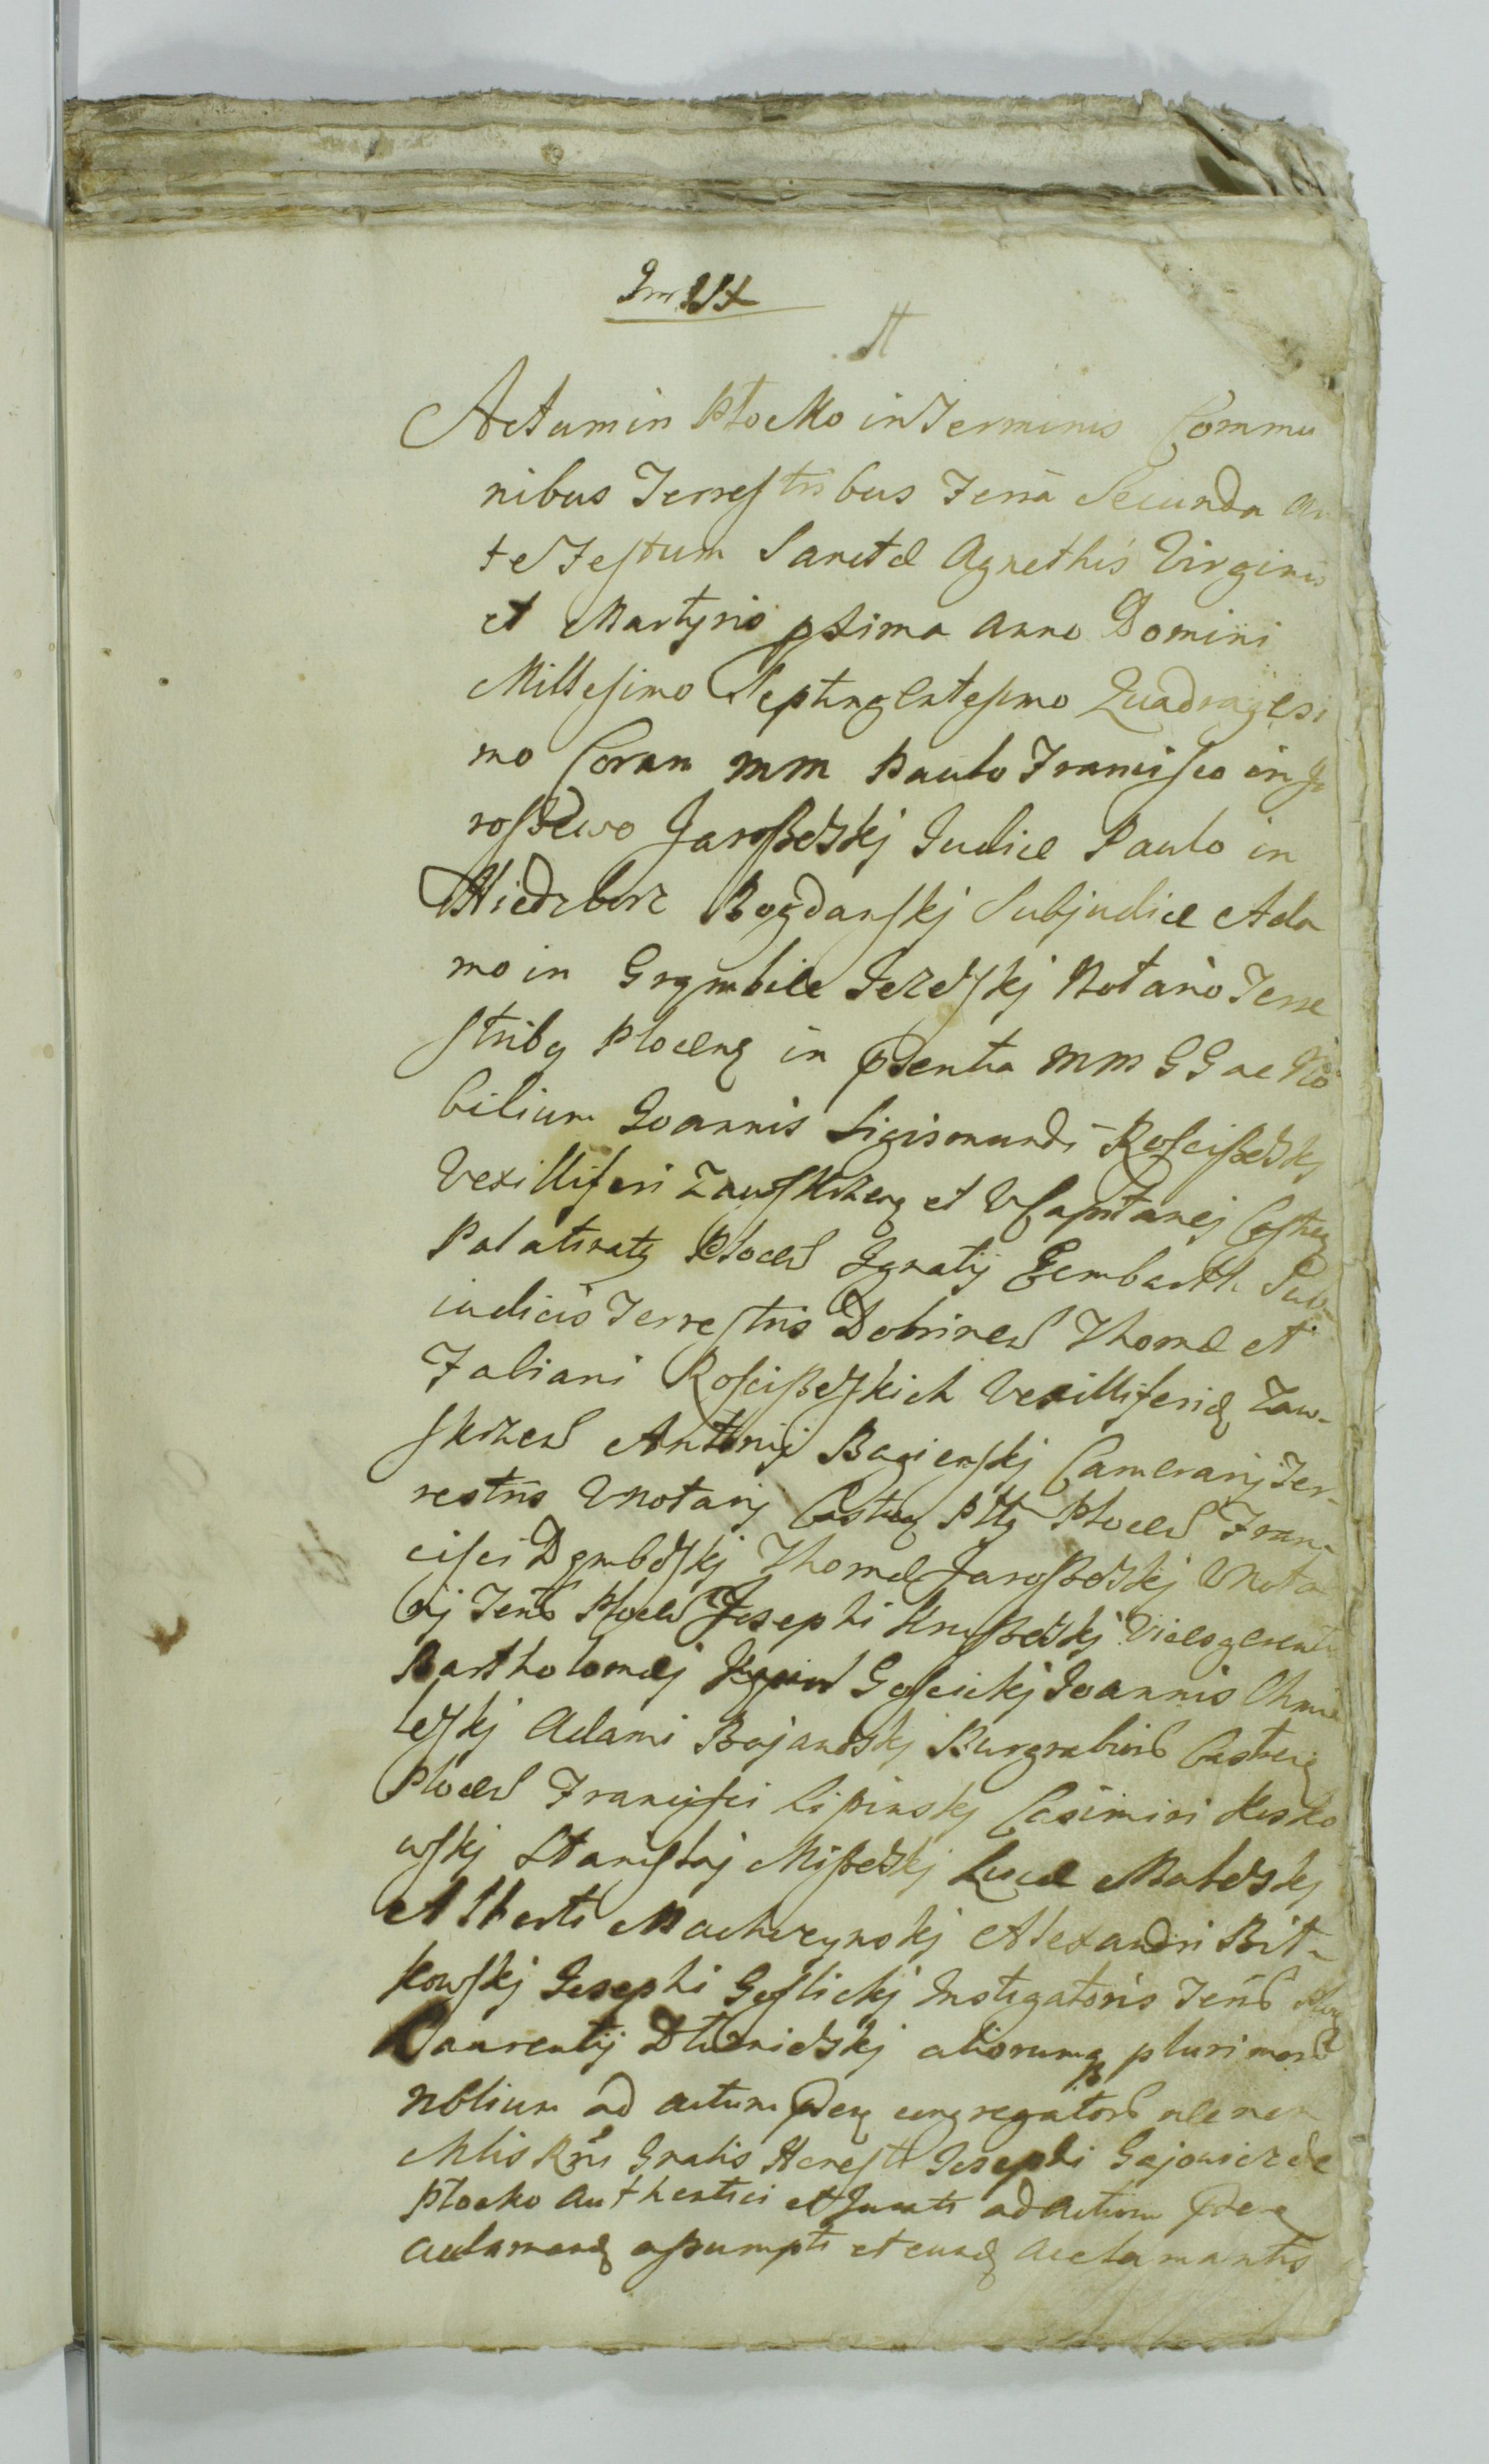 Actum in Płocko in Terminis Commu
nibus Terrestribus Feria Secunda an
te Festum Sanctæ Agnethis Virginis
et Martyris pxima Anno Domini
Millesimo Septingentesimo Quadragesi
mo Coram MM Paulo Francisco in Ja
roszewo Jaroszewskj Judice Paulo in
Niedrborz Bogdanskj Subjudice Ada
mo in Jezewskj Notario Terre
stribus Plocen in pntia MM GG ac No
bilium Joannis Sigismundi Rosciszewskj
Vexilliferi Zawskrzen et VCapitanej Castren
Palatinatus Plocen Ignatij Gembarth Sub-
iudicis Terrestris Dobrinen Thomæ et
Fabiani Rosciszewskich Vexilliferid Zaw-
skrzen Antonij Bagienskj Camerarij Ter-
restris VNotarij Castren Pttus Plocen Fran-
cisci Dembowskj Thomæ Jaroszewskj VNota
rij Terris Plocen Josephi Kruszewskj Vicesgerentis
Bartholomæj Goscickj Joannis Chmie
lewskj Adami Bojanowskj Burgrabiorum Castren
Plocen Francisci Lipinskj Casimiri
wskj Stanislaj Miszewskj Lucæ Malewskj
Alberti Machczynskj Alexandri Bit-
kowskj Josephi Goslickj Instigatoris Terris Plocen
Laurentij Dłuzniewskj aliorumq plurimorum
Nblium ad actum pnten congregatorum nec non
Mtis Rgis Gnalis Josephi Gajowicz de
Płocko Authentici et Jurati ad actum pntem
acclamand assumpti et eund acclamantis